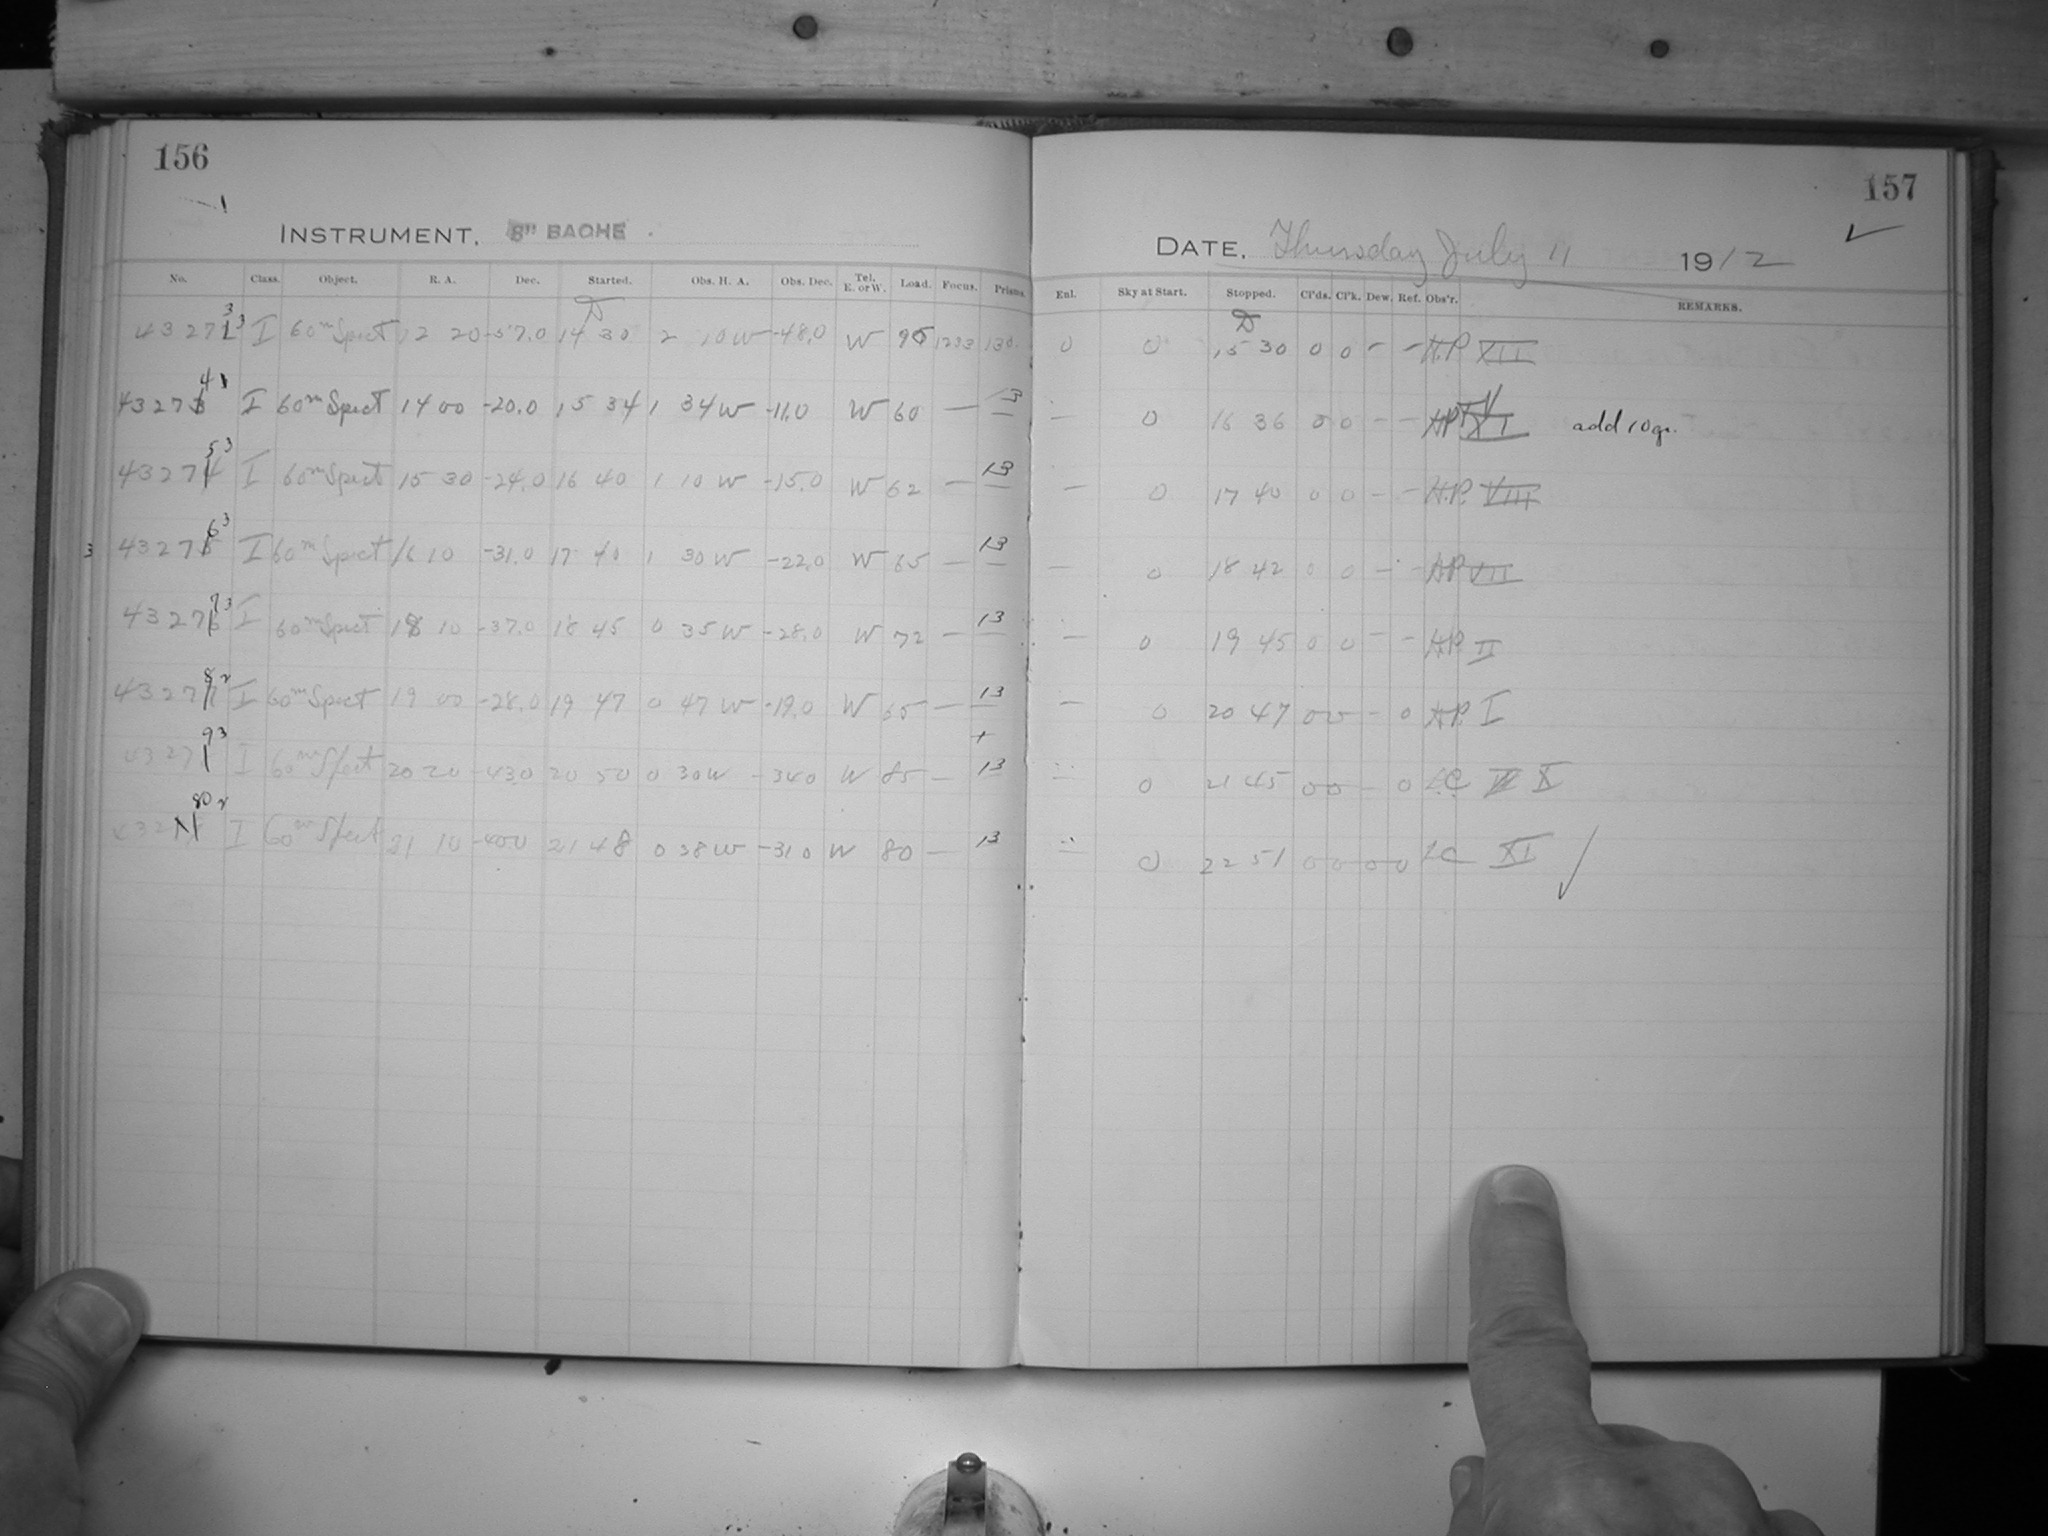 156
INSTRUMENT. 8" BACHE
No. Class. Object. R. A. Dec. Started. Obs. H. A. Obs. Dec. Tel. E. or W. Load. Focus. Prisms.
3 3
4327 I 60m Spect 12 20 -57.0 14 30 2 10 W -48.0 W 95 1233 130
4
4327 I 60m Spect 14 00 -20.0 15 34 1 34 W -11.0 W 60 — 13
5 3
43274 I 60m Spect 15 30 -24.0 16 40 1 10 W -15.0 W 62 — 13
6 3
3 43275 I 60m Spect 16 10 -31.0 17 40 1 30 W -22.0 W 65 — 13
7 3
43276 I 60m Spect 18 10 -37.0 18 45 0 35 W -28.0 W 72 — 13
8 2
43277 I 60m Spect 19 00 -28.0 19 47 0 47 W -19.0 W 65 — 13
9 3
4327 I 60m Spect 20 20 -43.0 20 50 0 30 W -34.0 W 85 — 13
80 2
432 I 60m Spect 21 10 -40.0 21 48 0 38 W -31.0 W 80 — 13
157
DATE. Thursday July 11 1912
Enl. Sky at Start. Stopped. Cl'ds. Cl'k. Dew. Ref. Obs'r. REMARKS.
0 0 15 30 0 0 - - H.P. XII
— 0 16 36 0 0 - - H.P. add 10 gr.
— 0 17 40 0 0 - - H.P. VIII
— 0 18 42 0 0 - - H.P. VII
— 0 19 45 0 0 - - H.P. II
— 0 20 47 0 0 - 0 H.P. I
— 0 21 45 0 0 - 0 L.C. X
— 0 22 51 0 0 0 0 LC XI